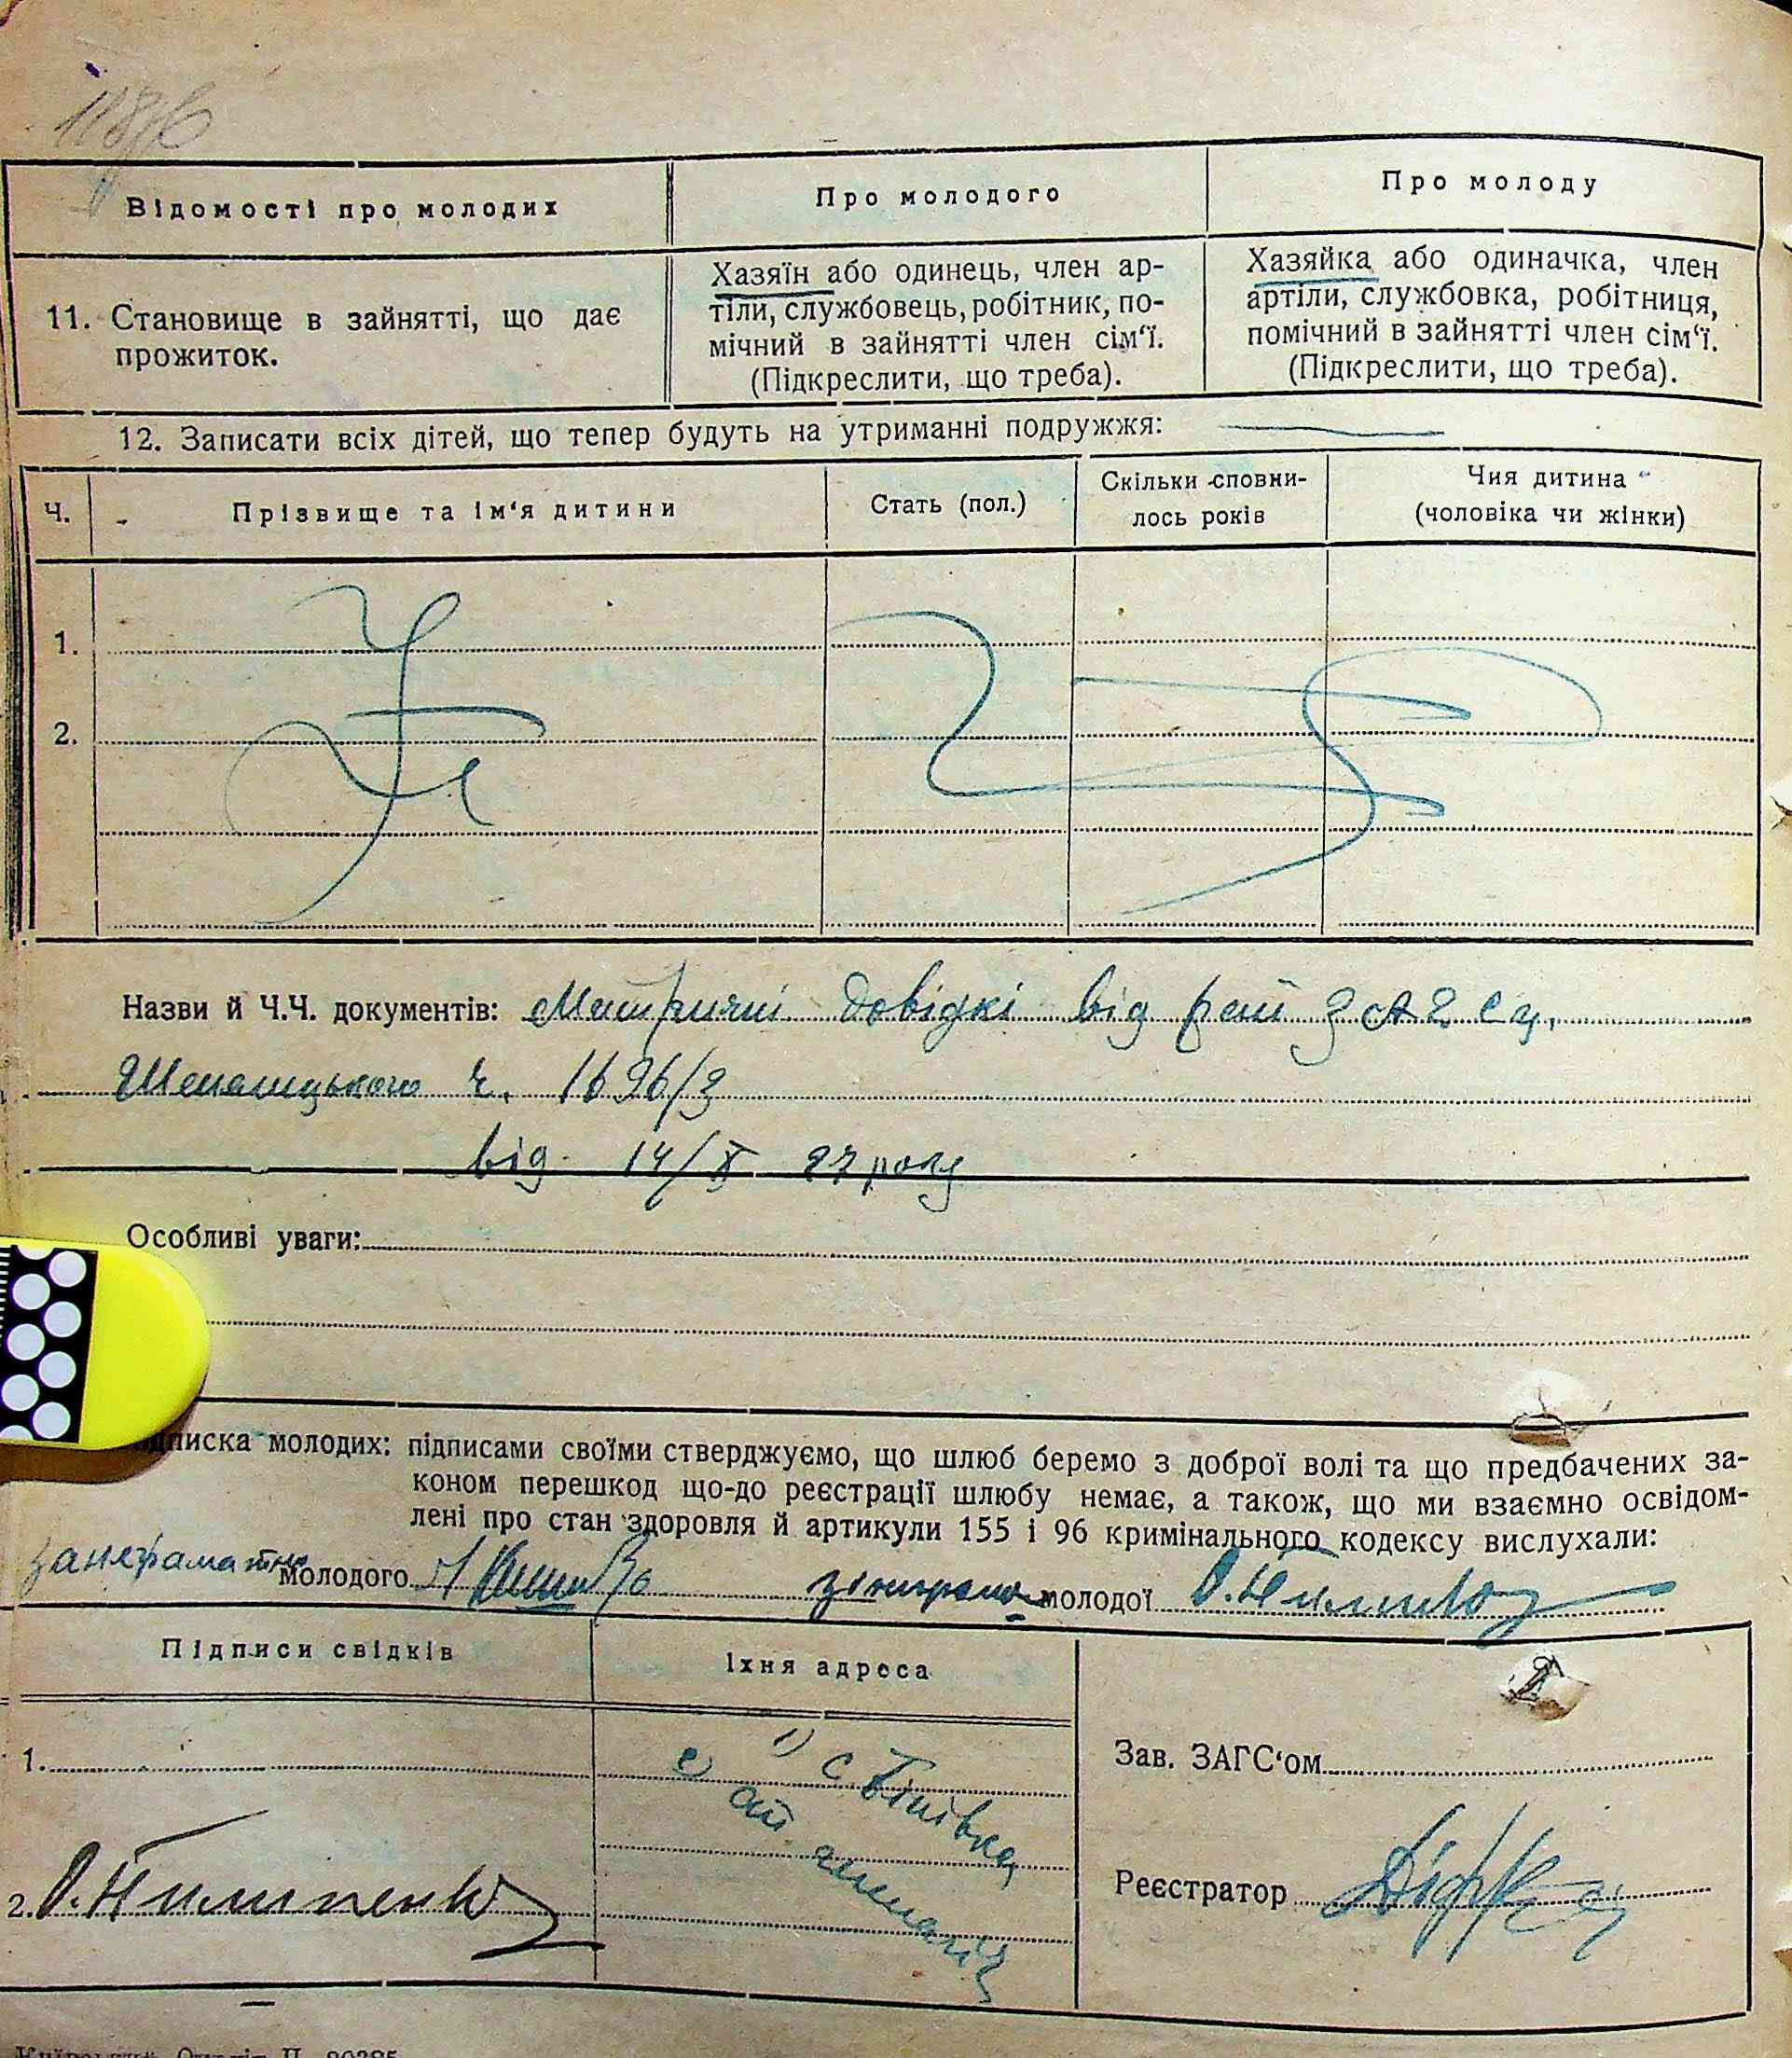 Відомості про молодих
Про молодого
Про молоду
11. Становище в зайнятті, що дає
прожиток.
Хазяїн або одинець, член ар-
тіли, службовець, робітник, по-
мічний в зайнятті член сім‘ї.
(Підкреслити, що треба).
Хазяйка або одиначка, член
артіли, службовка, робітниця,
помічний в зайнятті член сім‘ї.
(Підкреслити, що треба).
12. Записати всіх дітей, що тепер будуть на утриманні подружжя:
Ч.
Прізвище та ім‘я дитини
Стать (пол.)
Скільки сповни-
лось років
Чия дитина
(чоловіка чи жінки)
1.
2.
Назви й Ч.Ч. документів: Метричні довідкі від
ч. 1696/3
від 14/X 27 року
Особливі уваги:
писка молодих: підписами своїми стверджуємо, що шлюб беремо з доброї волі та що предбачених за-
коном перешкод що-до реєстрації шлюбу немає, а також, що ми взаємно освідом-
лені про стан здоровля й артикули 155 і 96 кримінального кодексу вислухали:
молодого
молодої
Підписи свідків
Їхня адреса
1.
1) с
2. О. Пилипенко
Зав. ЗАГС‘ом
Реєстратор